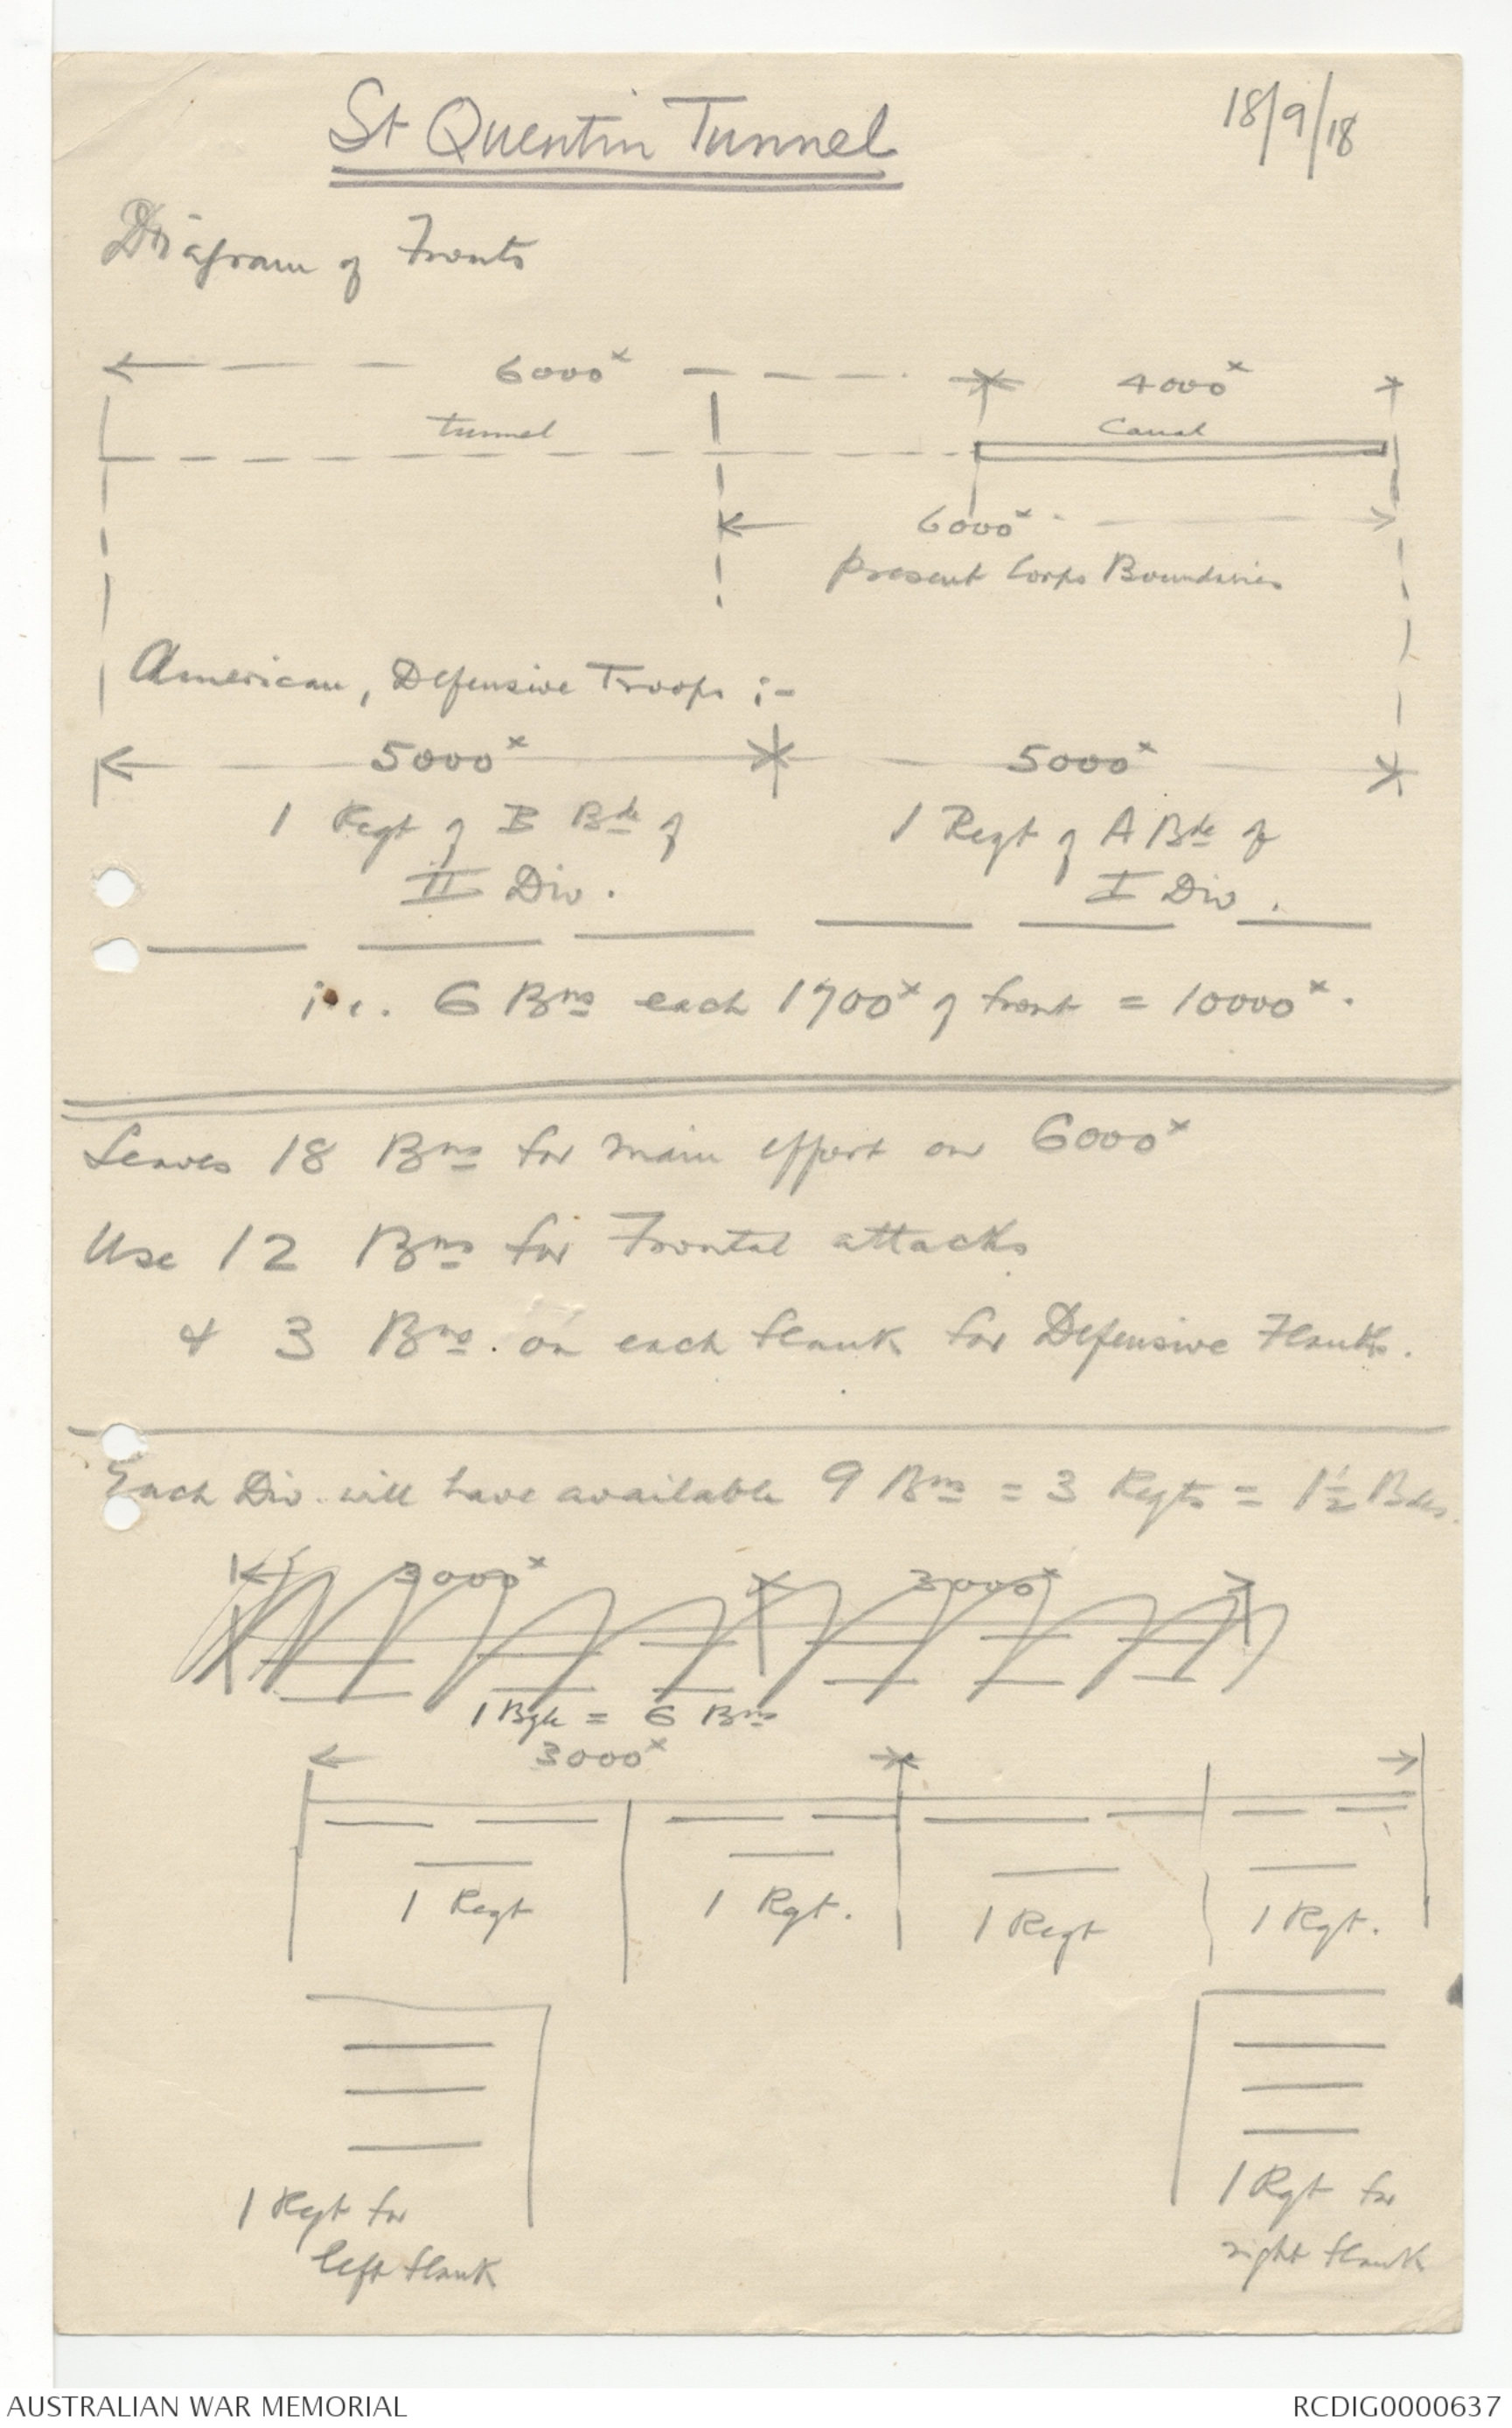 St Quentin Tunnel
18/9/18
Diagram of Fronts
6000ˣ 4000ˣ
Tunnel Canal
6000ˣ
present Corps Boundaries
American, Defensive Troops :-
5000ˣ 5000ˣ
1 Regt of B Bde of 1 Regt of A Bde of
II Div. I Div.
i.e. 6 Bns each 1700ˣ of front = 10000ˣ.
Leaves 18 Bns for main effort on 6000ˣ
Use 12 Bns for Frontal attacks
& 3 Bns. on each flank for Defensive Flanks.
Each Div. will have available 9 Bns = 3 Regts = 1½ Bdes.
3000ˣ 3000ˣ
1 Bde = 6 Bns
3000ˣ
1 Regt 1 Rgt. 1 Regt 1 Rgt.
1 Regt for
left flank
1 Rgt for
right flank
AUSTRALIAN WAR MEMORIAL RCDIG0000637